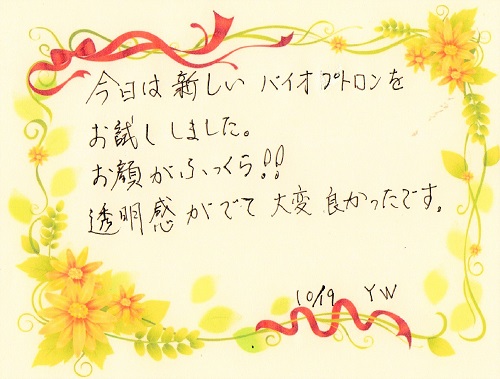 今日は新しいバイオプトロンを
お試ししました。
お顔がふっくら!!
透明感がでて大変良かったです。
10/19 YW